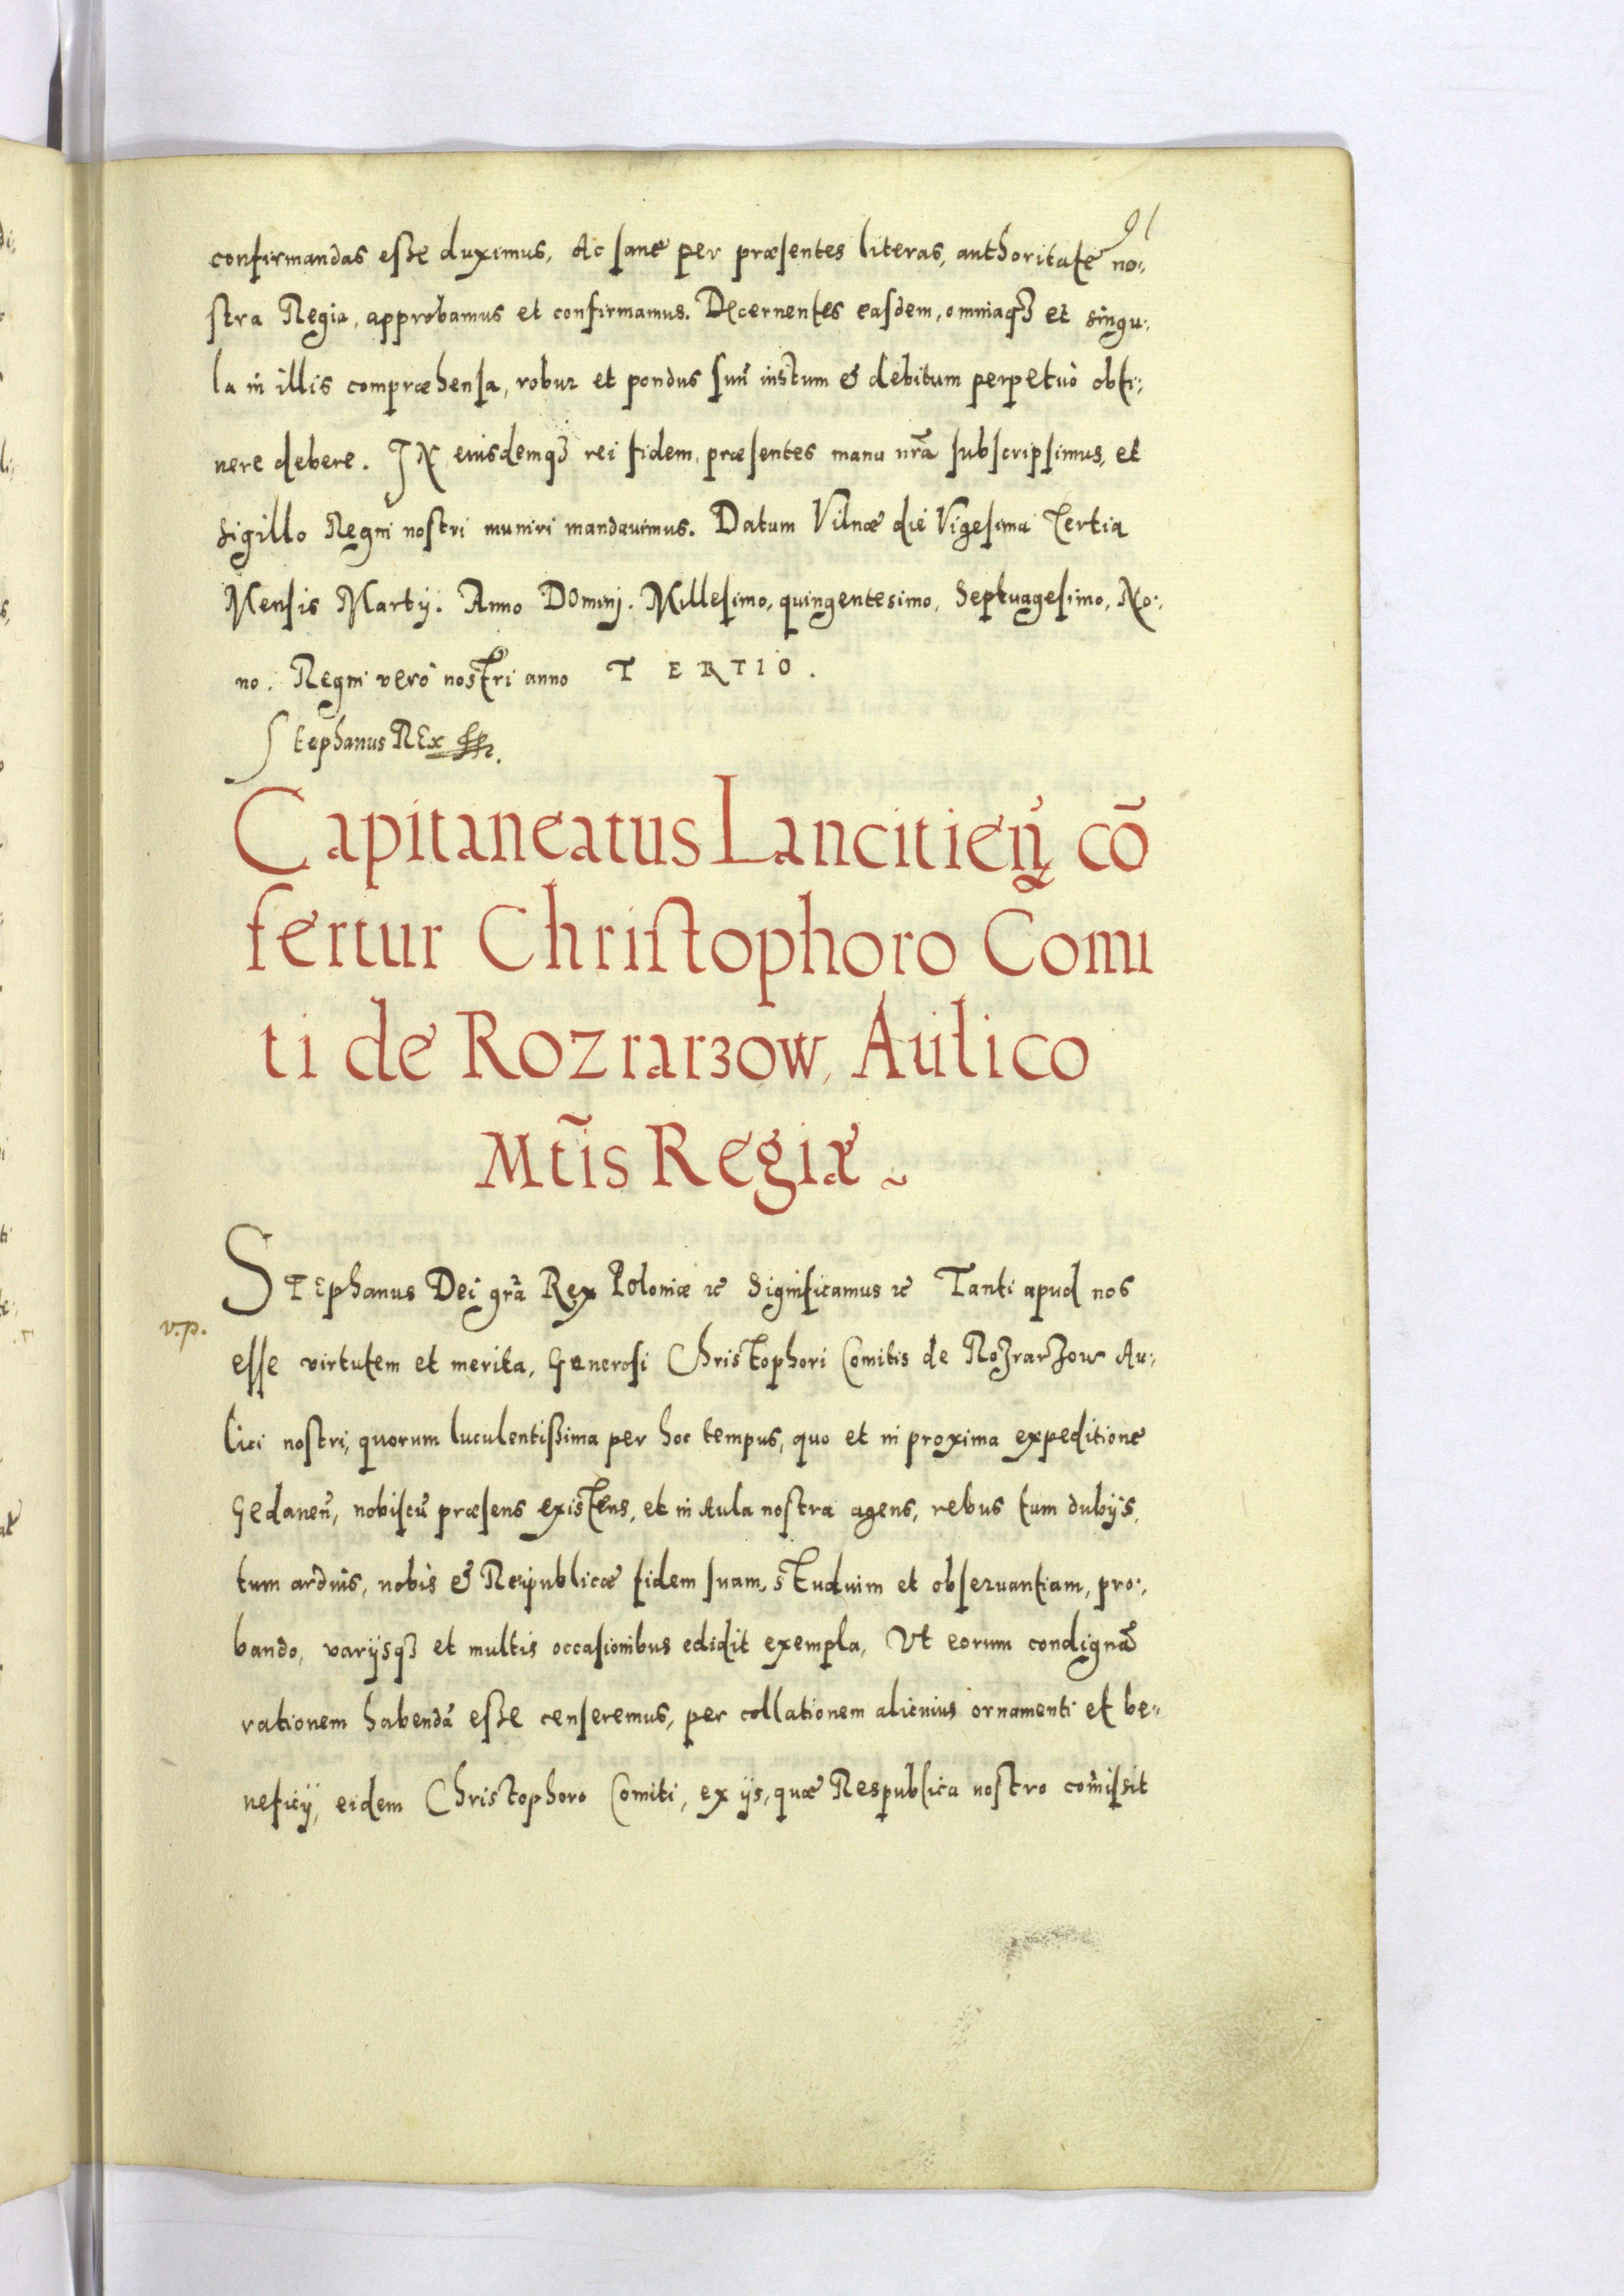 91
confirmandas eſse duximus, Ac ſane per præſentes literas, authoritate no:,
ſtra Regia, approbamus et confirmamus. Decernentes eaſdem, omniaqȝ et singu:,
la in illis compræhenſa, robur et pondus ſuũ iustum & debitum perpetuò obti:,
nere debere. IN euisdemqȝ rei fidem, præſentes manu nrã ſubſcripſimus, et
Sigillo Regni noſtri muniri mandauimus. Datum Vilnæ die Vigeſima Tertia
Menſis Martij. Anno Dominj. Milleſimo, quingentesimo, Septuageſimo, No:,
no. Regni verò nostri anno TERTIO.
Stephanus REx
Capitaneatus Lancitieñ cõ
fertur Chriſtophoro Comi
ti de Rozrarzow, Aulico
Mt̃is Regiæ
STEphanus Dei grã Rex Poloniæ ꝛc Significamus ꝛc Tanti apud nos
v.p.
eſſe virtutem et merita, Generoſi Christophori Comitis de Rozrarzow Au:,
lici noſtri, quorum luculentiſsima per hoc tempus, quo et in proxima expeditione
Gedaneñ, nobiſcũ præſens existens, et in Aula noſtra agens, rebus tum dubijs,
tum arduis, nobis & Reipublicæ fidem ſuam, studuim et obſeruantiam, pro:,
bando, varijsqȝ et multis occaſionibus edidit exempla, Vt eorum condignã
rationem habendã eſse cenſeremus, per collationem alicuius ornamenti et be:,
neficij, eidem Christophoro Comiti, ex ijs, quæ Respublica noſtro com̃iſsit